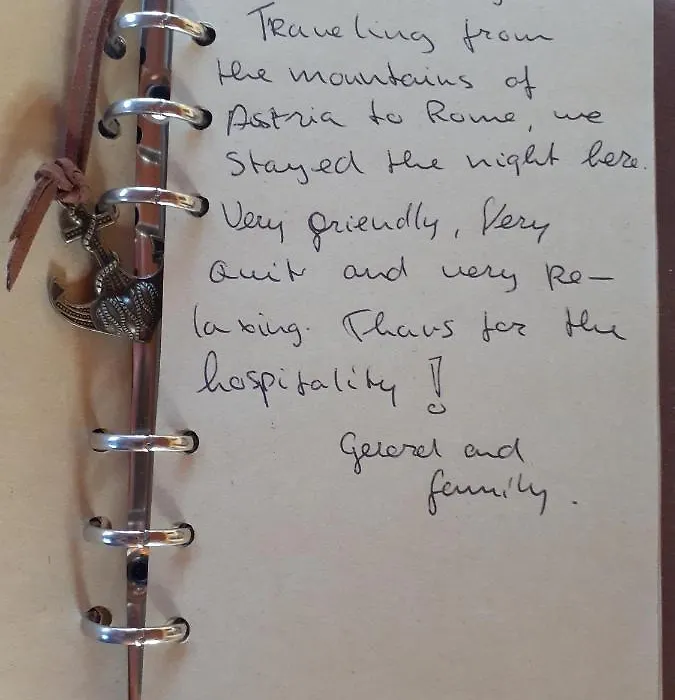 Traveling from
the mountains of
Astria to Rome, we
stayed the night here.
Very friendly, Very
Quit and very Re-
laxing. Thaus for the
hospitality!
Gerard and
family.